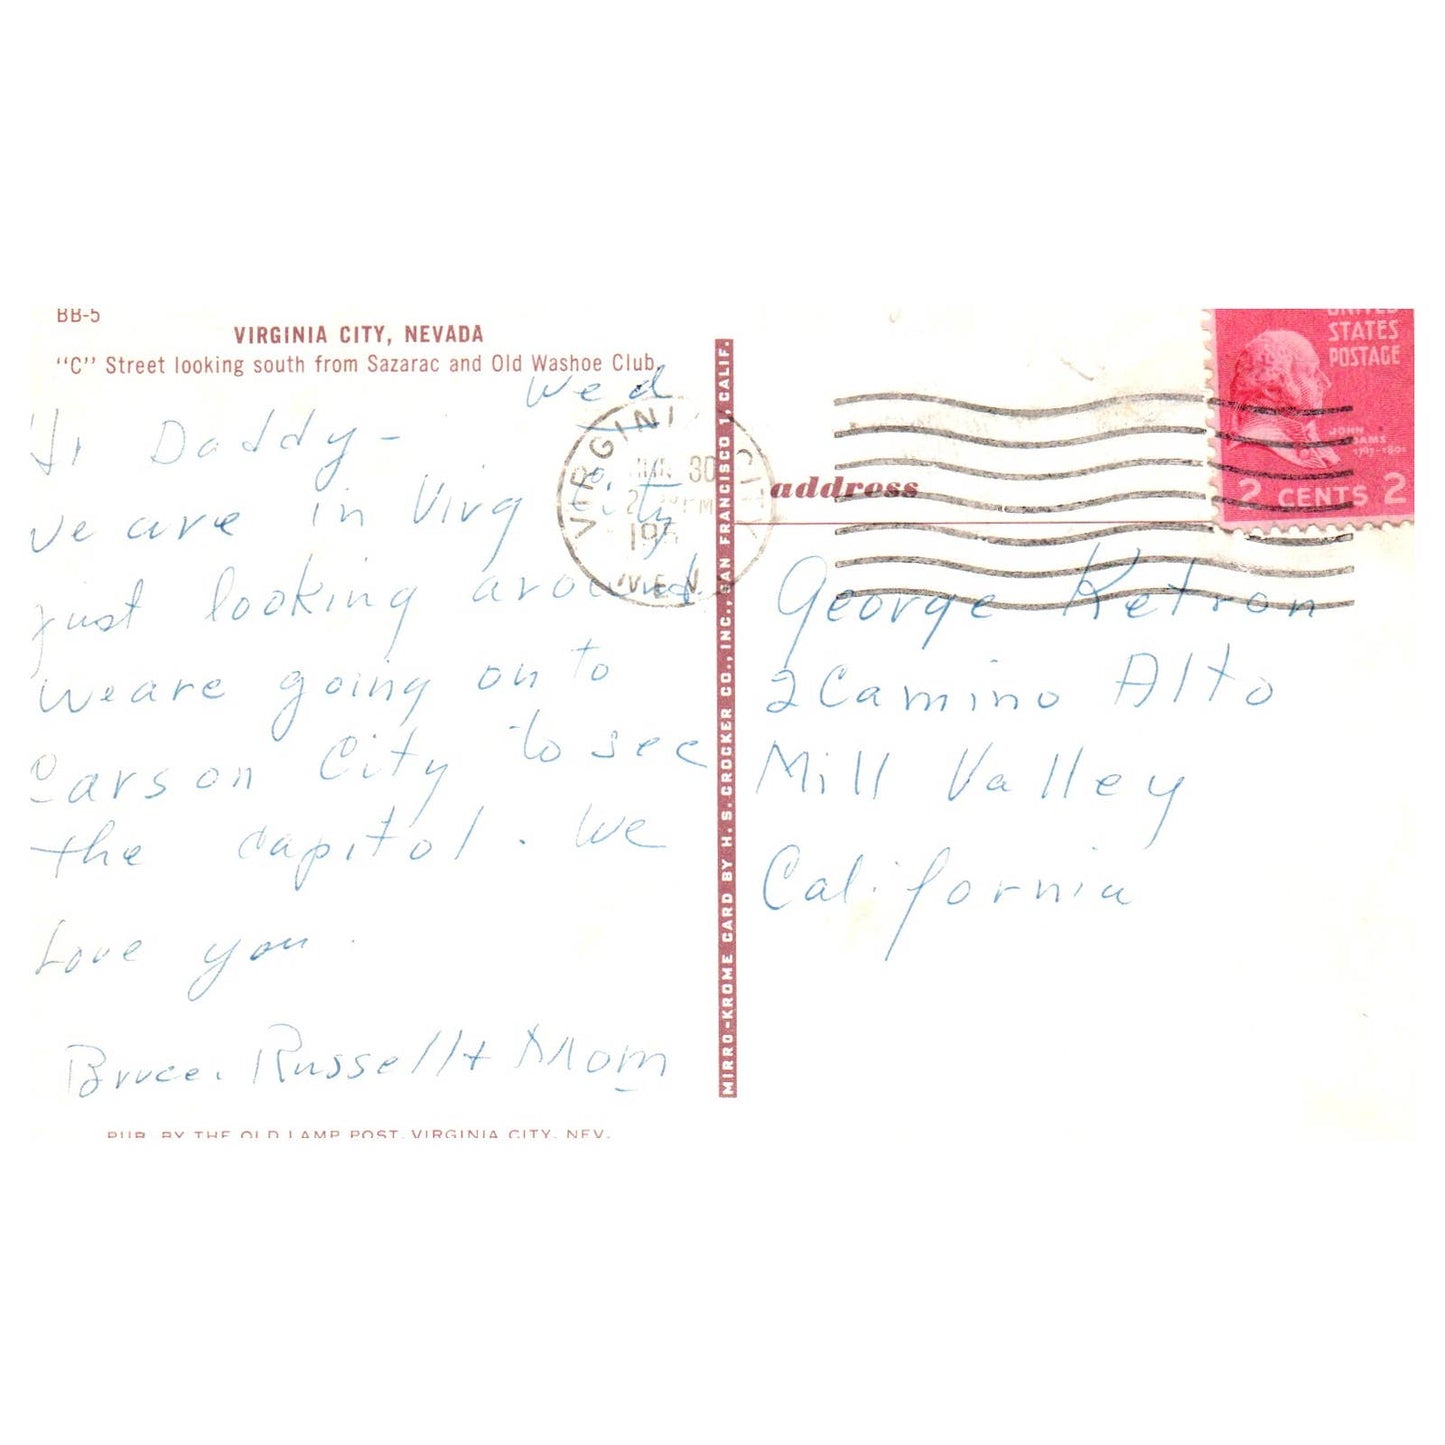 BB-5
VIRGINIA CITY, NEVADA
"C" Street looking south from Sazarac and Old Washoe Club.
Wed
Hi Daddy -
We are in Virg City
just looking around
We are going on to
Carson City to see
the capitol. We
Love you.
Bruce. Russell + Mom
PUB. BY THE OLD LAMP POST, VIRGINIA CITY, NEV.
MIRRO-KROME CARD BY H. S. CROCKER CO., INC., SAN FRANCISCO 1, CALIF.
VIRGINIA CITY
30
PM
NEV.
UNITED
STATES
POSTAGE
JOHN
ADAMS
1797-1801
2 CENTS 2
address
George Ketron
2 Camino Alto
Mill Valley
California